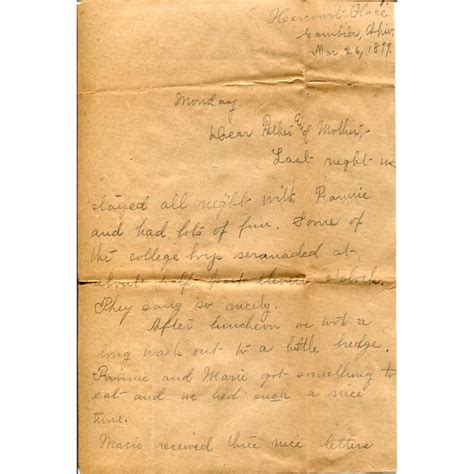 Harcourt Place
Gambier, Ohio.
Mar. 26, 1899.
Monday
Dear Father & Mother,-
Last night we
stayed all night with Fannie
and had lots of fun. Some of
the college boys seranaded at
about half past eleven o'clock.
They sang so nicely.
After luncheon we took a
long walk out to a little bridge.
Fannie and Marie got something to
eat and we had such a nice
time.
Marie received three nice letters